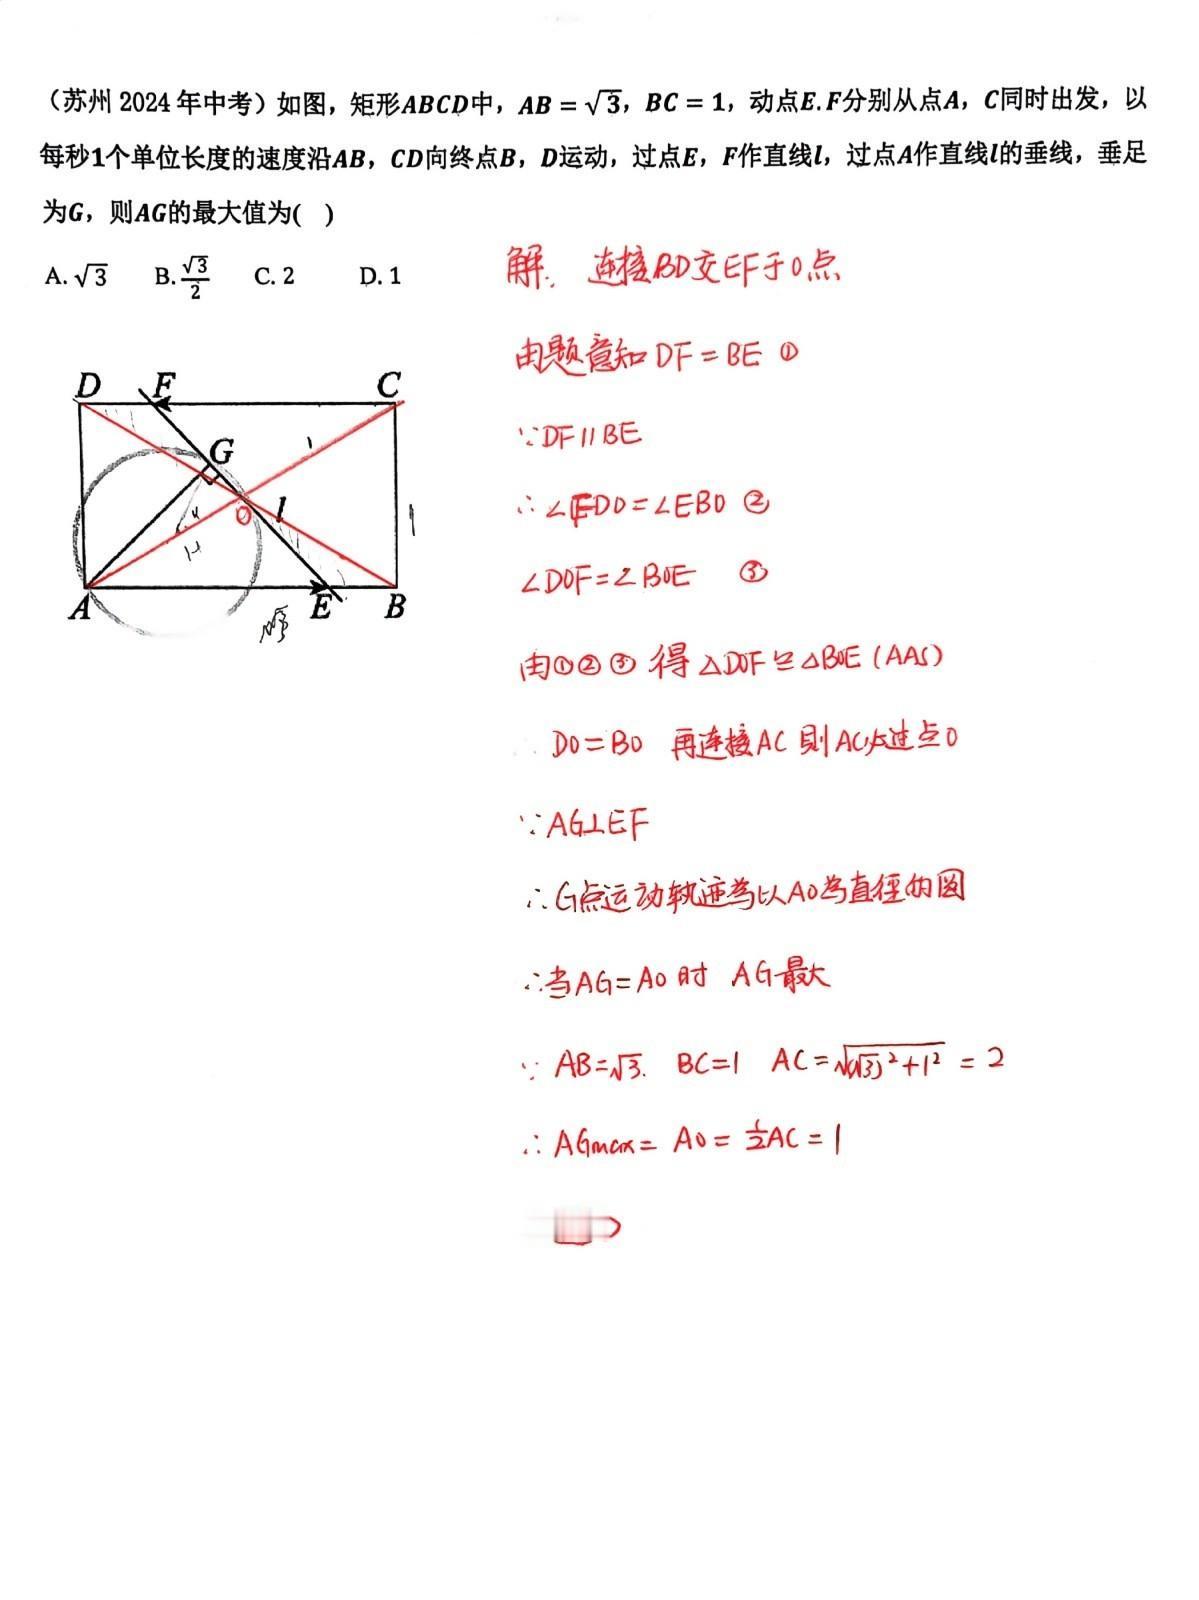 （苏州 2024 年中考）如图，矩形ABCD中，AB = √3，BC = 1，动点E.F分别从点A，C同时出发，以
每秒1个单位长度的速度沿AB，CD向终点B，D运动，过点E，F作直线l，过点A作直线l的垂线，垂足
为G，则AG的最大值为( )
A. √3 B. √3/2 C. 2 D. 1
解. 连接BD交EF于O点
由题意知 DF = BE ①
∵DF∥BE
∴∠FDO=∠EBO ②
∠DOF=∠BOE ③
由①②③ 得 △DOF≌△BOE (AAS)
DO=BO 再连接AC 则AC必过点O
∵AG⊥EF
∴G点运动轨迹為以AO為直径的圆
∴当AG=AO时 AG最大
∵ AB=√3. BC=1 AC=√(√3)²+1² = 2
∴ AGmax= AO= ½AC = 1
D F C
G
1
O l
H
1
A E B